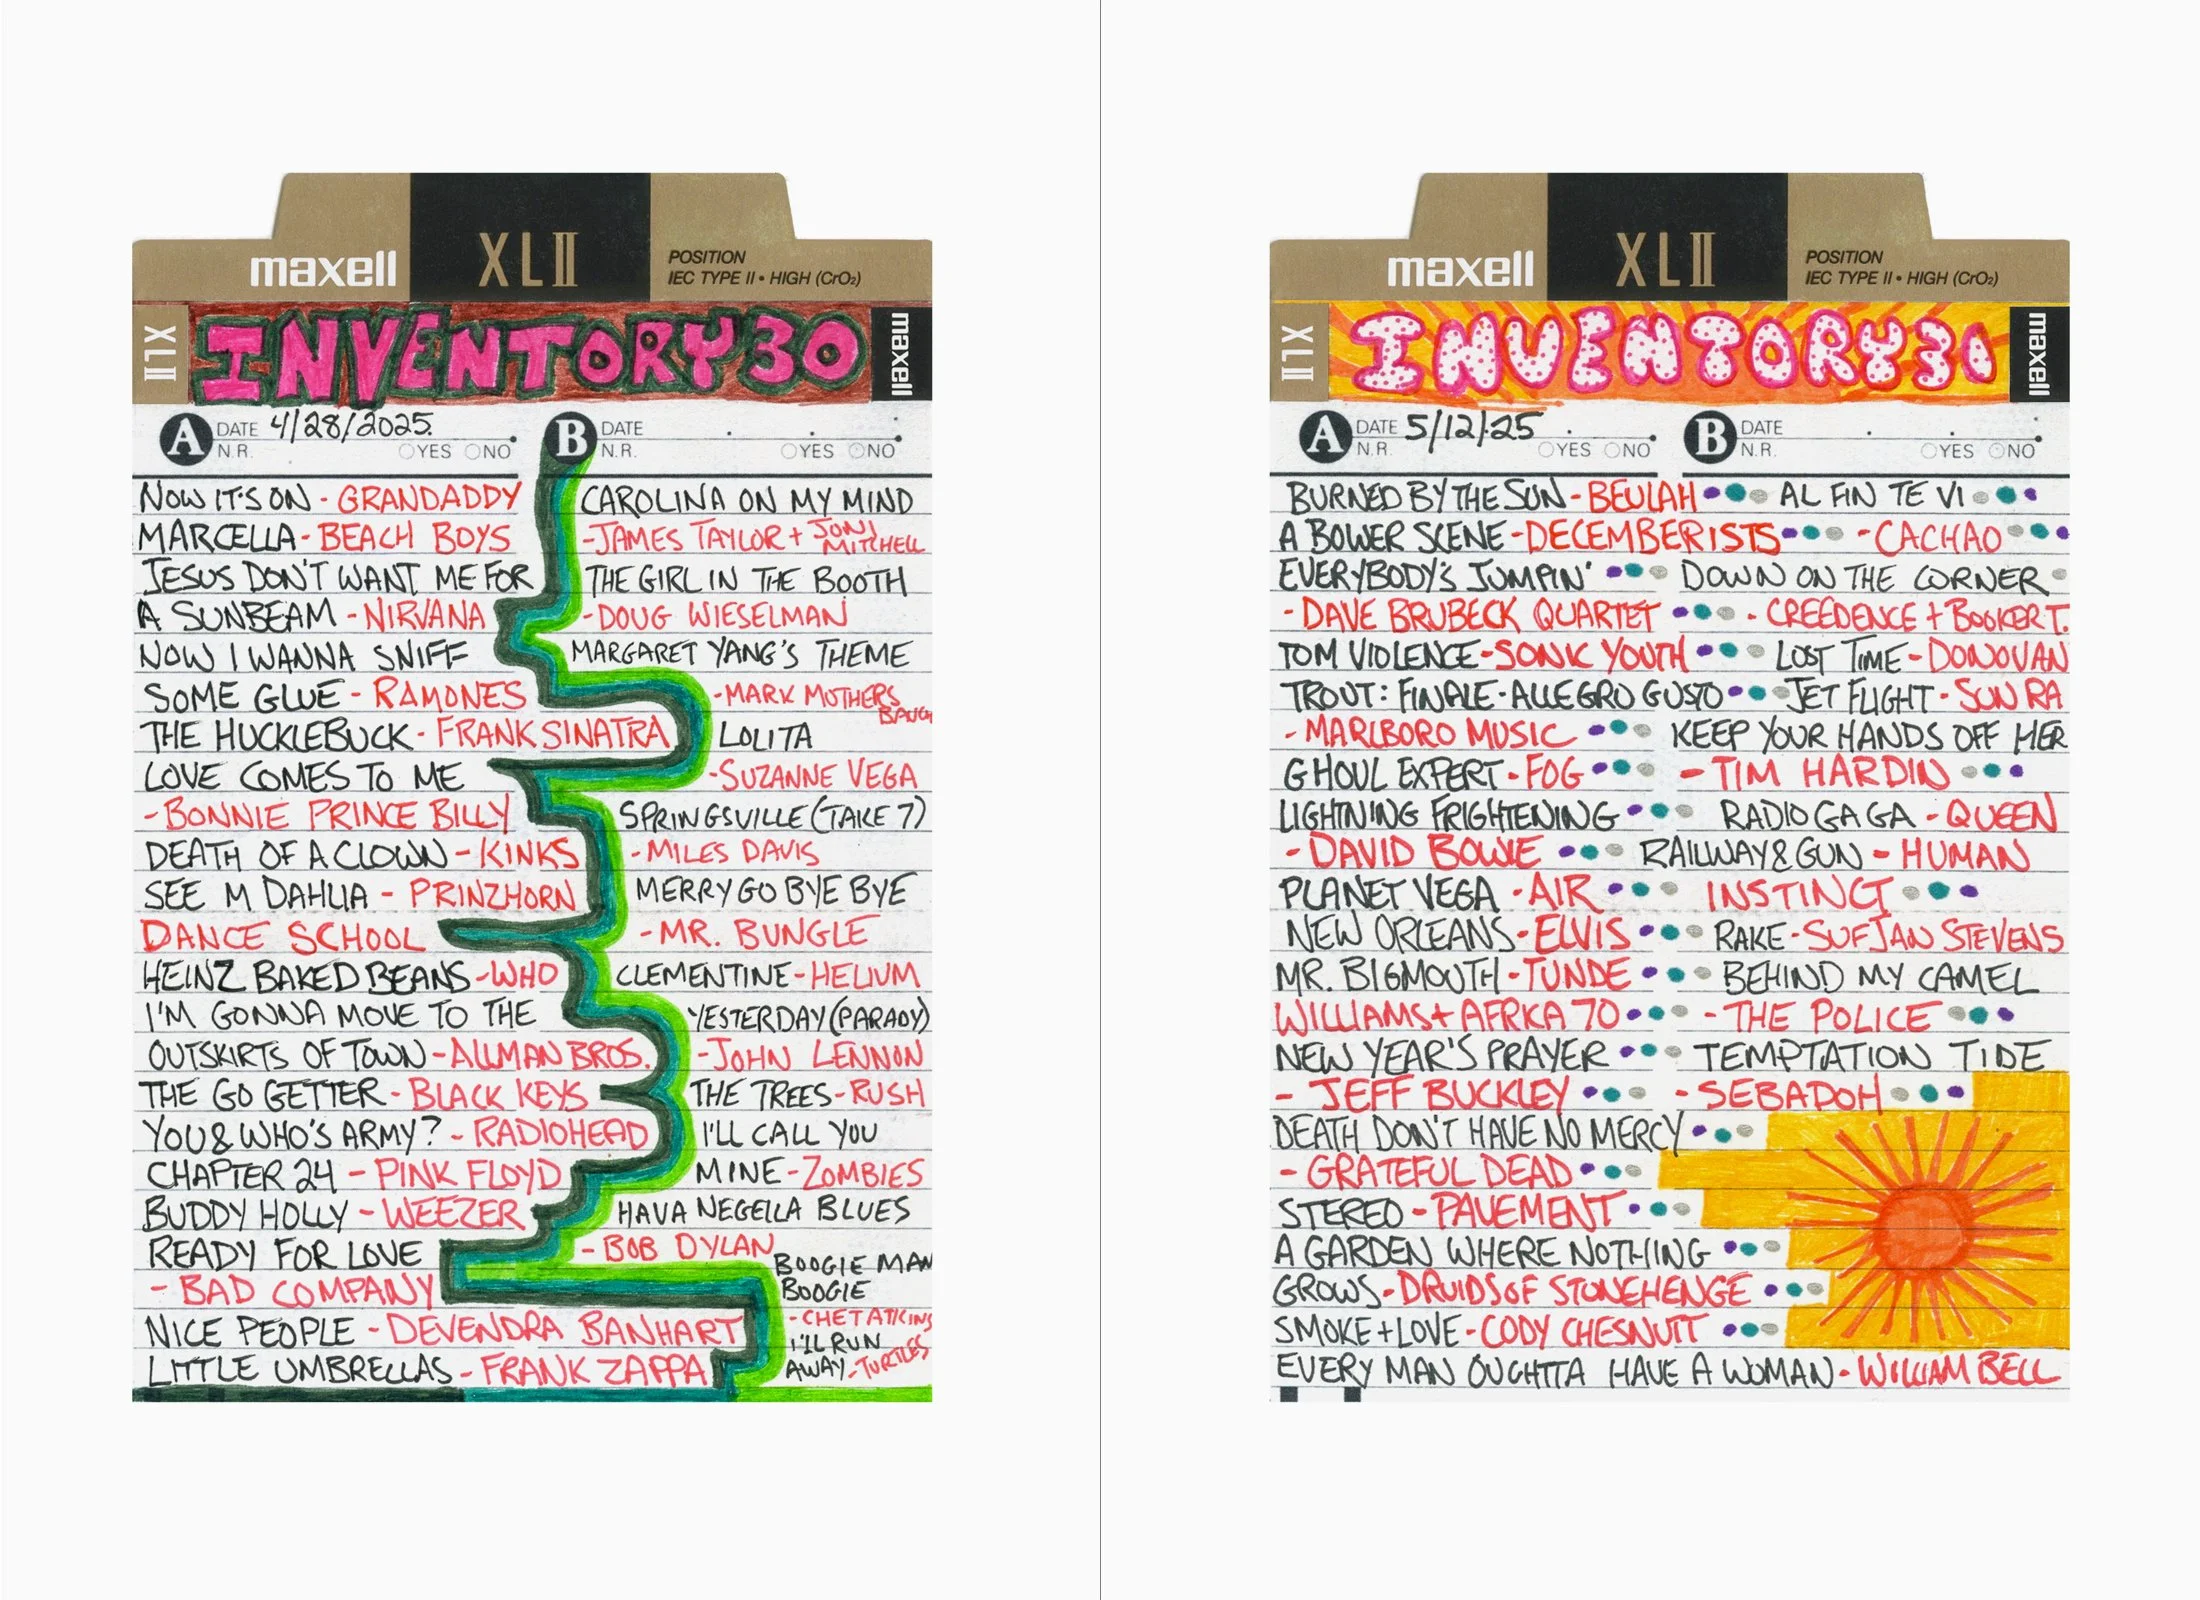 maxell XLII POSITION
IEC TYPE II • HIGH (CrO₂)
XLII INVENTORY 30 maxell
A DATE 4/28/2025.
N.R. YES NO
NOW IT'S ON - GRANDADDY
MARCELLA - BEACH BOYS
JESUS DON'T WANT ME FOR
A SUNBEAM - NIRVANA
NOW I WANNA SNIFF
SOME GLUE - RAMONES
THE HUCKLEBUCK - FRANK SINATRA
LOVE COMES TO ME
- BONNIE PRINCE BILLY
DEATH OF A CLOWN - KINKS
SEE M DAHLIA - PRINZHORN
DANCE SCHOOL
HEINZ BAKED BEANS - WHO
I'M GONNA MOVE TO THE
OUTSKIRTS OF TOWN - ALLMAN BROS.
THE GO GETTER - BLACK KEYS
YOU & WHO'S ARMY? - RADIOHEAD
CHAPTER 24 - PINK FLOYD
BUDDY HOLLY - WEEZER
READY FOR LOVE
- BAD COMPANY
NICE PEOPLE - DEVENDRA BANHART
LITTLE UMBRELLAS - FRANK ZAPPA
B DATE
N.R. YES NO
CAROLINA ON MY MIND
- JAMES TAYLOR + JONI
MITCHELL
THE GIRL IN THE BOOTH
- DOUG WIESELMAN
MARGARET YANG'S THEME
- MARK MOTHERS
BAUGH
LOLITA
- SUZANNE VEGA
SPRINGSVILLE (TAKE 7)
- MILES DAVIS
MERRY GO BYE BYE
- MR. BUNGLE
CLEMENTINE - HELIUM
YESTERDAY (PARADY)
- JOHN LENNON
THE TREES - RUSH
I'LL CALL YOU
MINE - ZOMBIES
HAVA NEGEILA BLUES
- BOB DYLAN
BOOGIE MAN
BOOGIE
- CHET ATKINS
I'LL RUN
AWAY - TURTLES
maxell XLII POSITION
IEC TYPE II • HIGH (CrO₂)
XLII INVENTORY 31 maxell
A DATE 5/12/25
N.R. YES NO
BURNED BY THE SUN - BEULAH
A BOWER SCENE - DECEMBERISTS
EVERYBODY'S JUMPIN'
- DAVE BRUBECK QUARTET
TOM VIOLENCE - SONIC YOUTH
TROUT: FINALE - ALLEGRO GUSTO
- MARLBORO MUSIC
GHOUL EXPERT - FOG
LIGHTNING FRIGHTENING
- DAVID BOWIE
PLANET VEGA - AIR
NEW ORLEANS - ELVIS
MR. BIGMOUTH - TUNDE
WILLIAMS + AFRKA 70
NEW YEAR'S PRAYER
- JEFF BUCKLEY
DEATH DON'T HAVE NO MERCY
- GRATEFUL DEAD
STEREO - PAVEMENT
A GARDEN WHERE NOTHING
GROWS - DRUIDS OF STONEHENGE
SMOKE + LOVE - CODY CHESNUTT
EVERY MAN OUGHTTA HAVE A WOMAN - WILLIAM BELL
B DATE
N.R. YES NO
AL FIN TE VI
- CACHAO
DOWN ON THE CORNER
- CREEDENCE + BOOKER T.
LOST TIME - DONOVAN
JET FLIGHT - SUN RA
KEEP YOUR HANDS OFF HER
- TIM HARDIN
RADIO GA GA - QUEEN
RAILWAY & GUN - HUMAN
INSTINCT
RAKE - SUFJAN STEVENS
BEHIND MY CAMEL
- THE POLICE
TEMPTATION TIDE
- SEBADOH